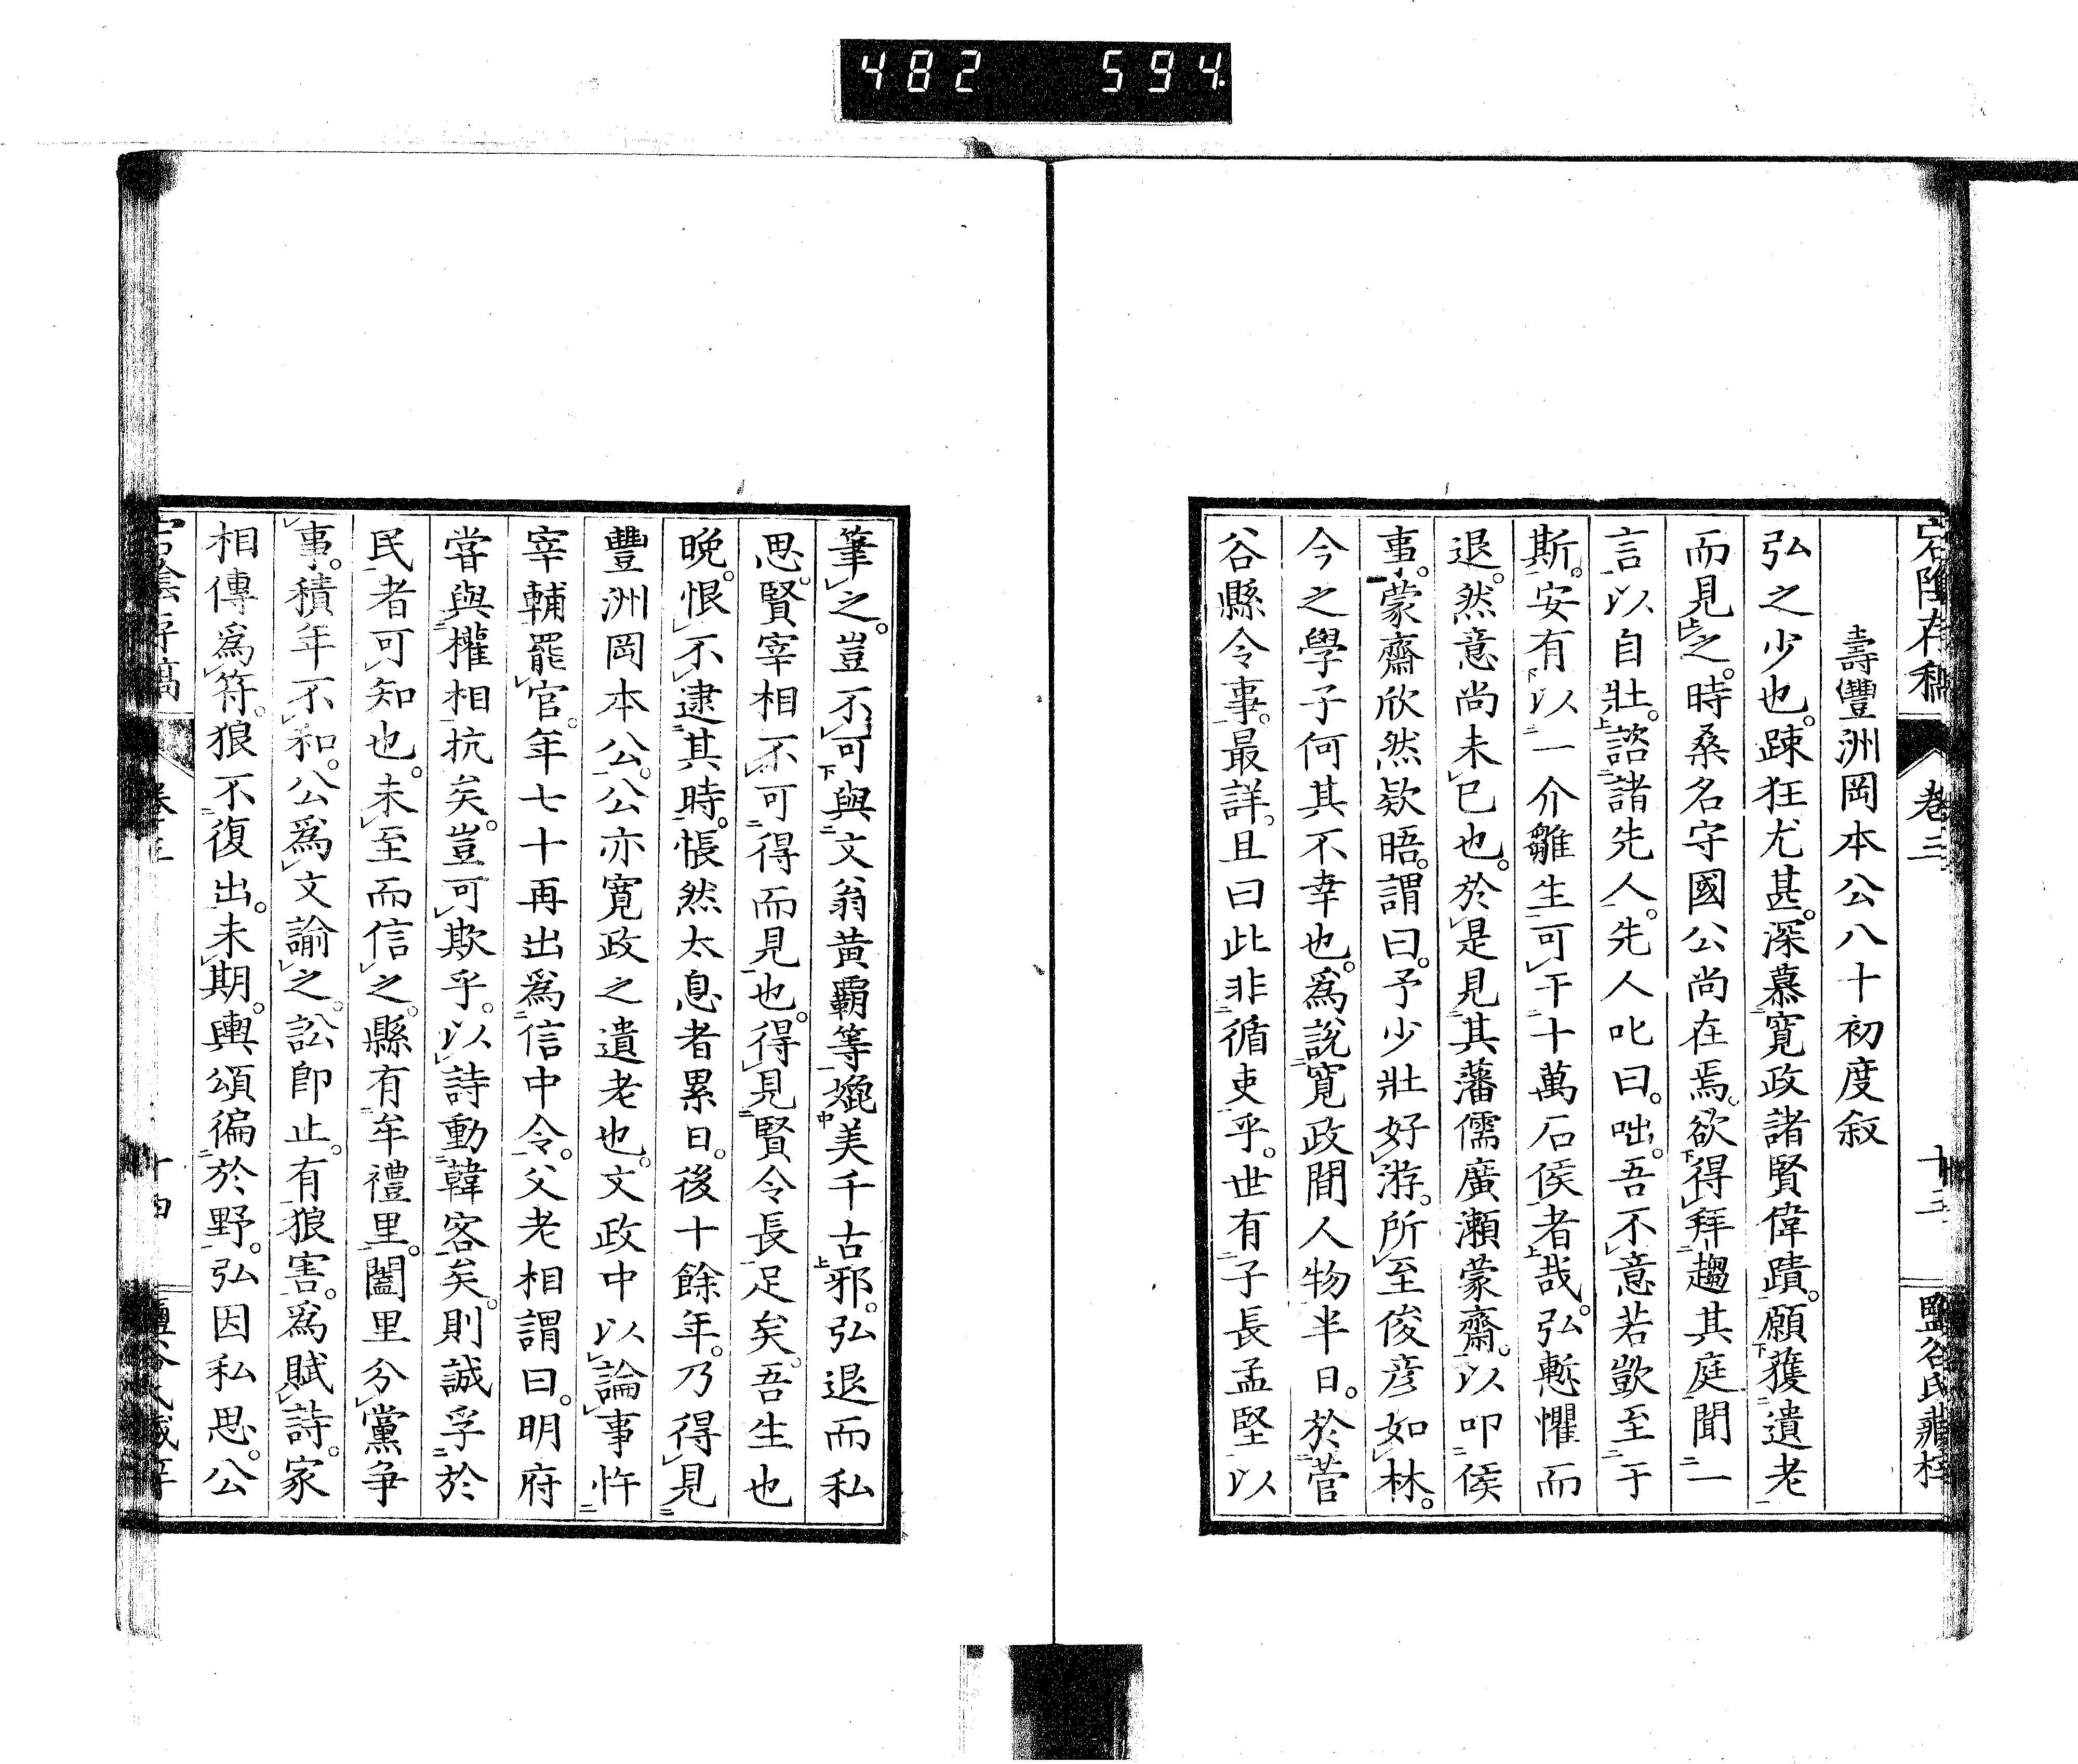 482 594
宕陰存稿 卷三 十三 鹽谷氏藏梓
壽豐洲岡本公八十初度叙
弘之少也。踈狂尤甚。深慕寬政諸賢偉蹟。願獲遺老
而見之。時桑名守國公尚在焉。欲得拜趨其庭聞一
言以自壯。諮諸先人。先人叱曰。咄。吾不意若獃至于
斯。安有以一介雛生可干十萬石侯者哉。弘慙懼而
退。然意尚未已也。於是見其藩儒廣瀬蒙齋。以叩侯
事。蒙齋欣然欵晤。謂曰。予少壯好游。所至俊彦如林。
今之學子何其不幸也。爲說寬政間人物半日。於菅
谷縣令事。最詳。且曰此非循吏乎。世有子長孟堅以
筆之。豈不可與文翁黃霸等媲美千古邪。弘退而私
思。賢宰相不可得而見也。得見賢令長足矣。吾生也
晚。恨不逮其時。悵然太息者累日。後十餘年。乃得見
豐洲岡本公。公亦寬政之遺老也。文政中以論事忤
宰輔罷官。年七十再出爲信中令。父老相謂曰。明府
嘗與權相抗矣。豈可欺乎。以詩動韓客矣。則誠孚於
民者可知也。未至而信之。縣有牟禮里。闔里分黨争
事。積年不和。公爲文諭之。訟卽止。有狼害。爲賦詩。家
相傳爲符。狼不復出。未期。輿頌徧於野。弘因私思。公
卷三